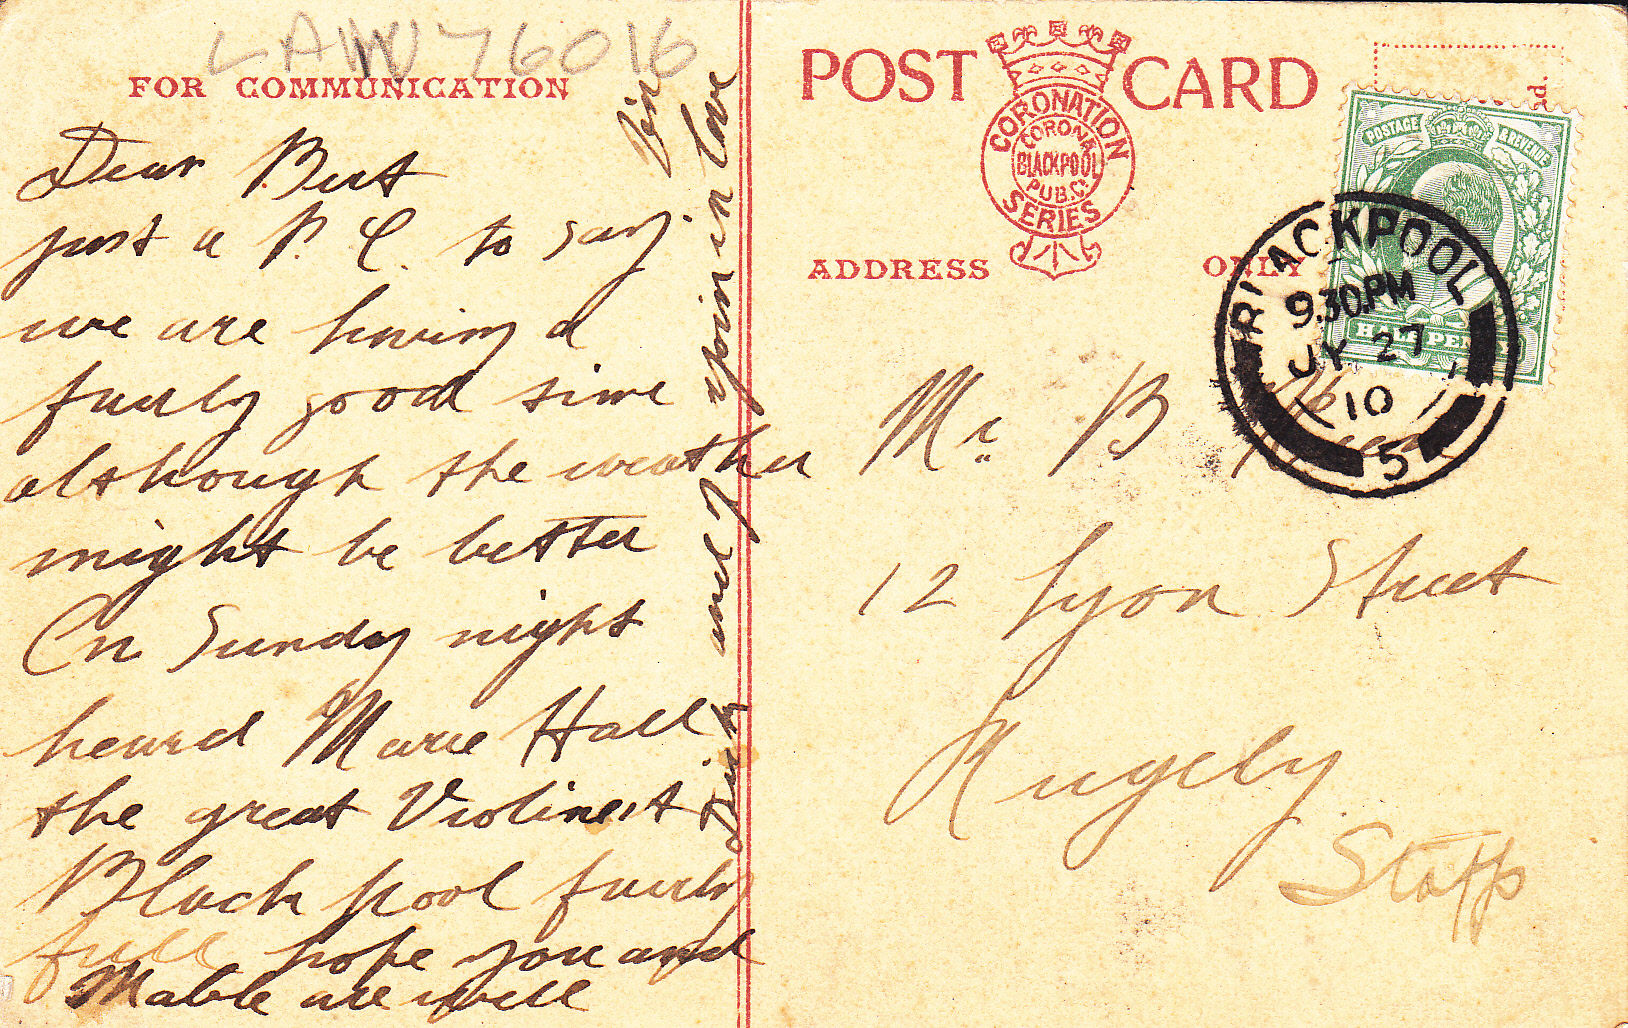 LAW 76016
FOR COMMUNICATION
Dear Bert
just a P. C. to say
we are having a
fairly good time
although the weather
might be better
On Sunday night
heard Marie Hall
the great Violinest
Blackpool fairly
full hope you and
Mable are well
Dick and J join in love
POST CARD
CORONATION
SERIES
CORONA
BLACKPOOL
PUB. Co
ADDRESS ONLY
d.
POSTAGE & REVENUE
HALF PENNY
BLACKPOOL
9.30 PM
JY 27
10
5
Mr. B
12 Lyon Street
Rugely
Staffs